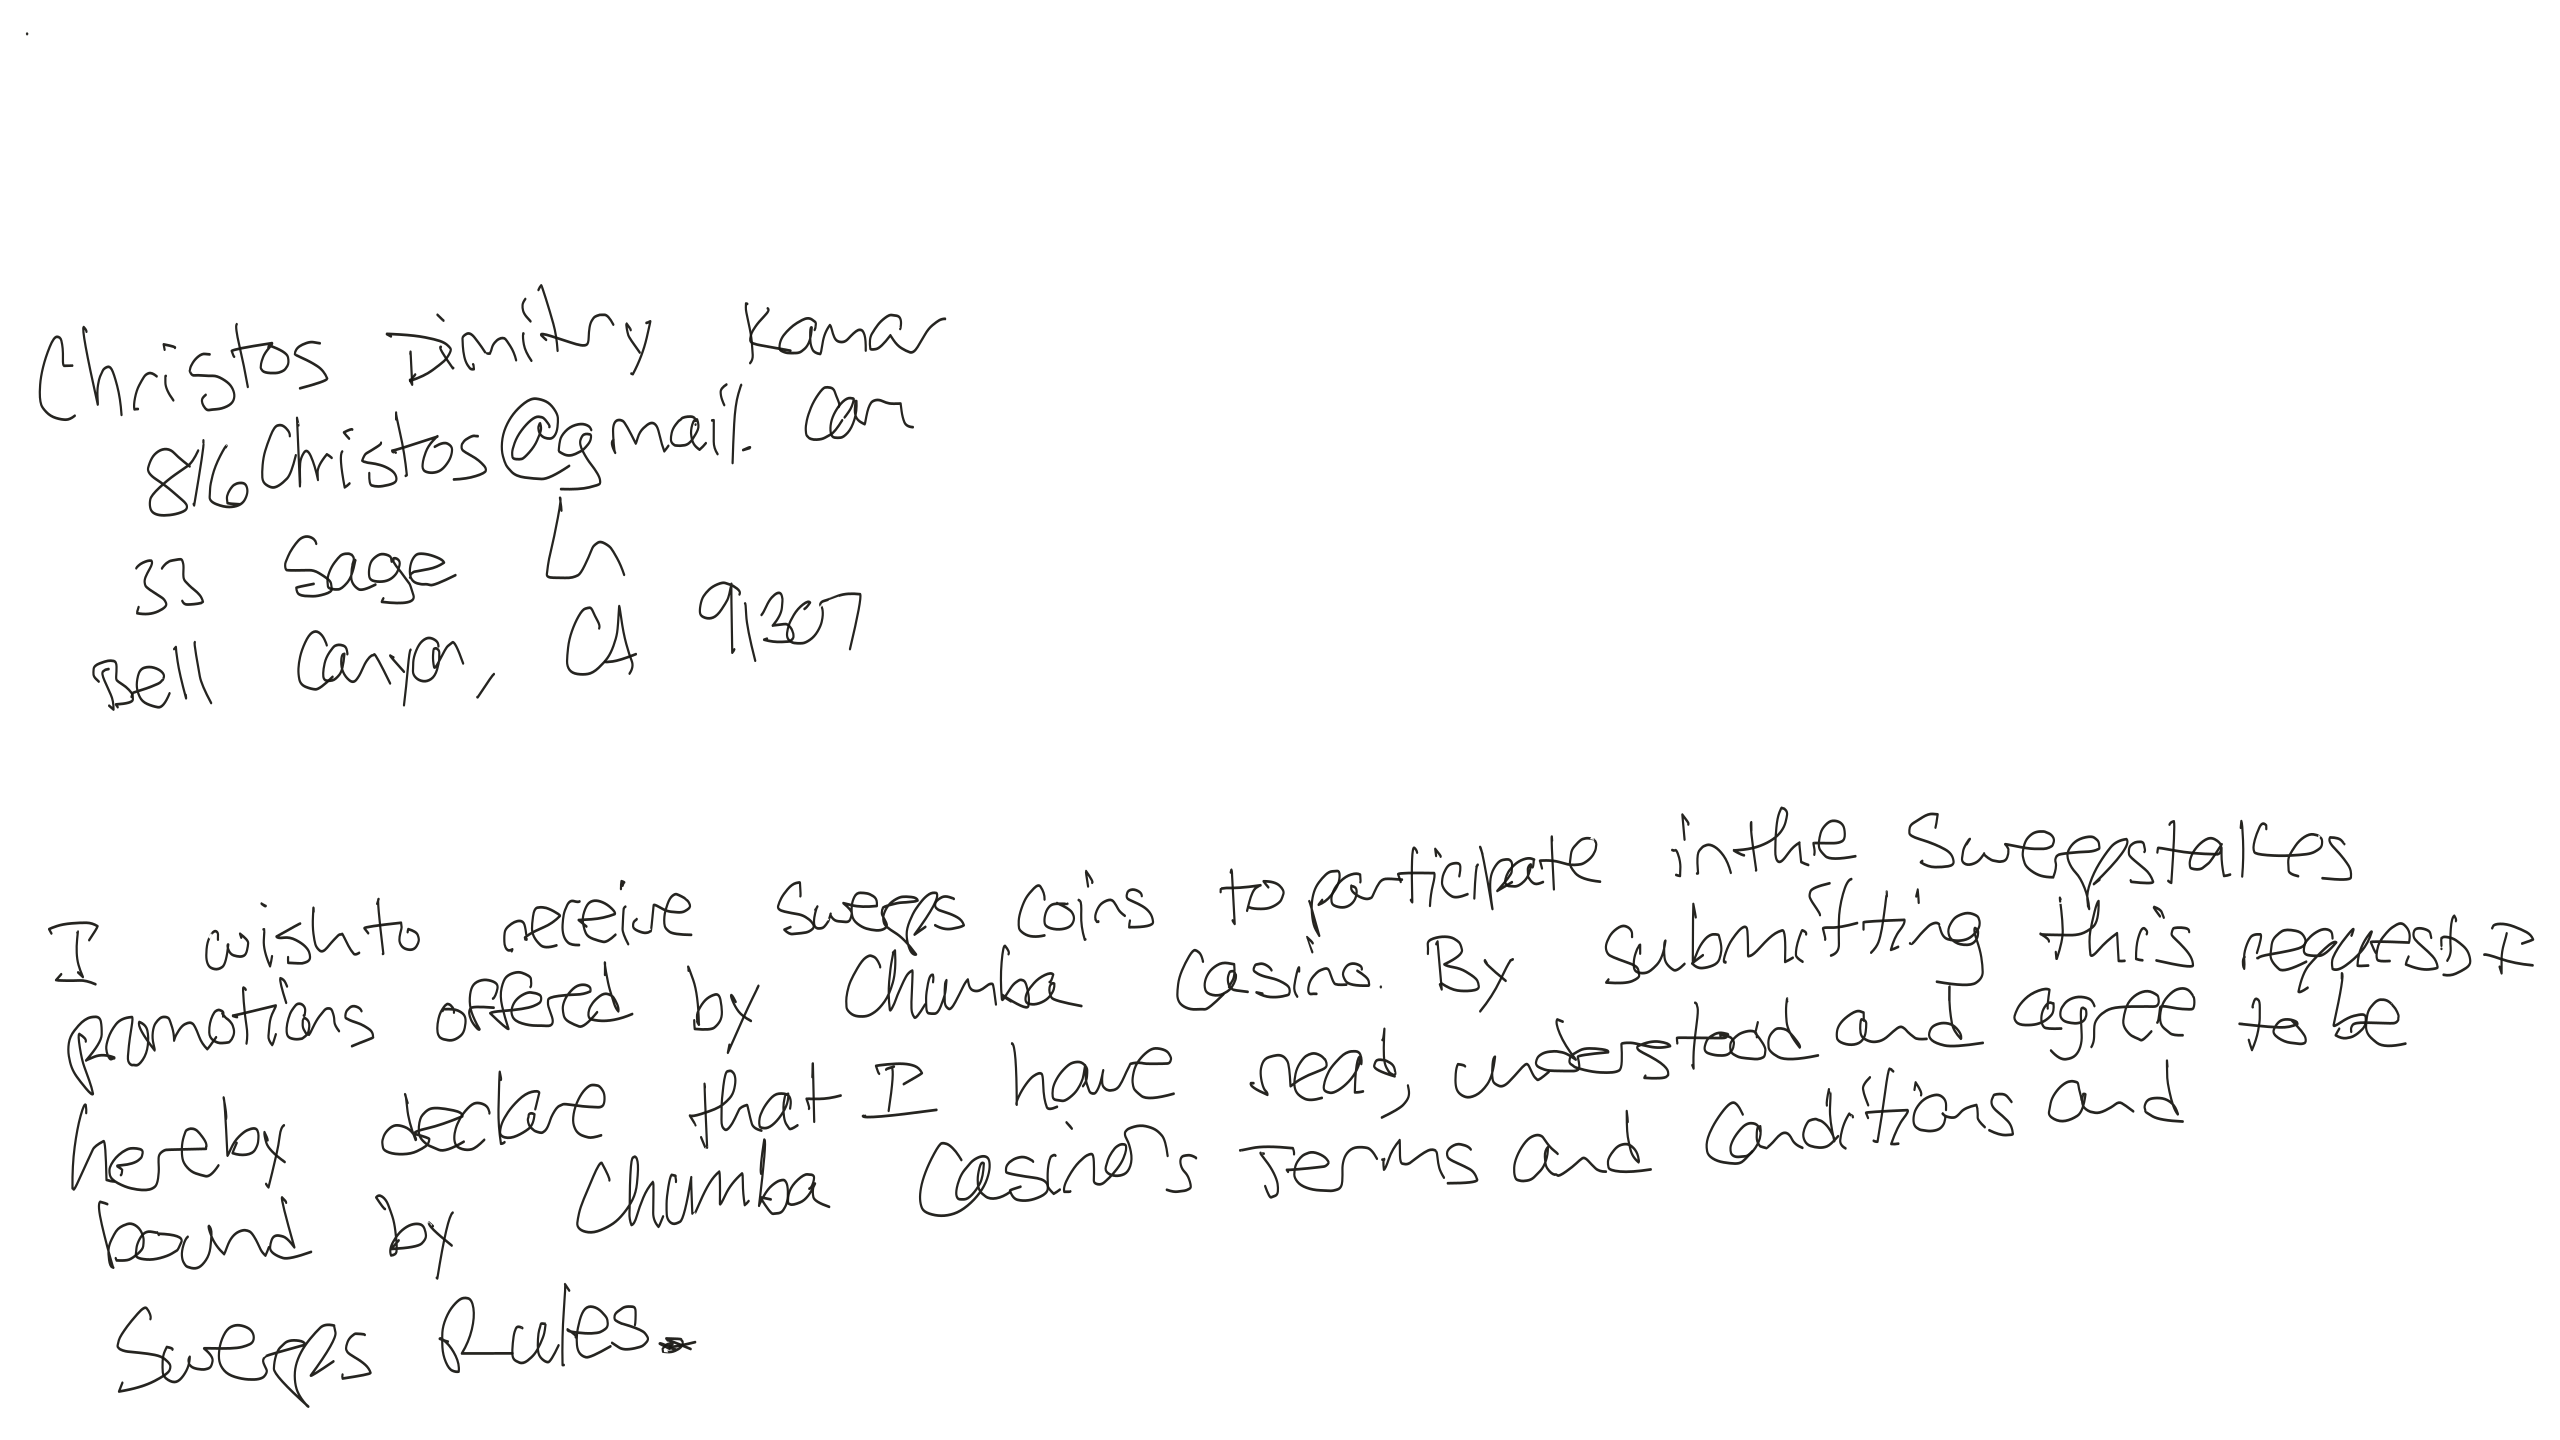 Christos Dimitry Kamar
816Christos@gmail.com
33 Sage Ln
Bell Canyon, CA 91307
I wish to receive sweeps coins to participate in the sweepstakes
promotions offered by Chumba Casino. By submitting this request, I
hereby declare that I have read, understood and agree to be
bound by Chumba Casino's Terms and Conditions and
Sweeps Rules.